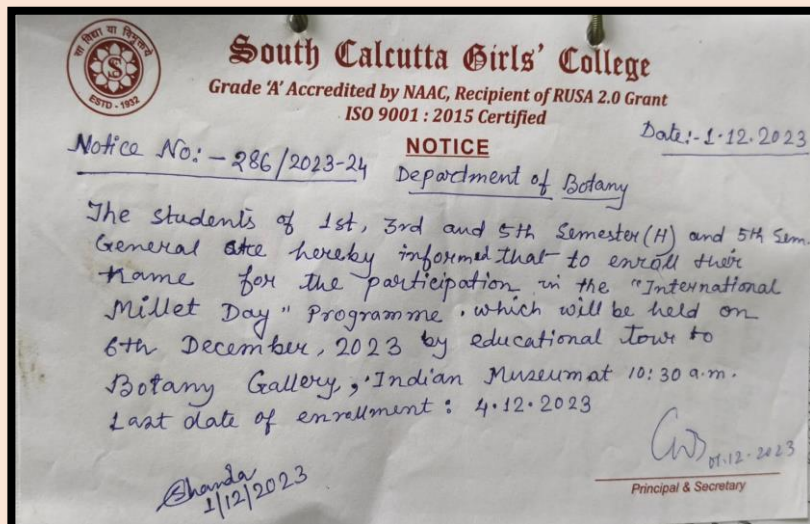 सा विद्या या विमुक्तये
S
ESTD - 1932
South Calcutta Girls' College
Grade 'A' Accredited by NAAC, Recipient of RUSA 2.0 Grant
ISO 9001 : 2015 Certified
Date:- 1.12.2023
Notice No:- 286/2023-24
NOTICE
Department of Botany
The students of 1st, 3rd and 5th Semester (H) and 5th Sem.
General are hereby informed that to enroll their
name for the participation in the "International
Millet Day" Programme. which will be held on
6th December, 2023 by educational tour to
Botany Gallery, Indian Museum at 10:30 a.m.
Last date of enrollment: 4.12.2023
01.12.2023
1/12/2023
Principal & Secretary